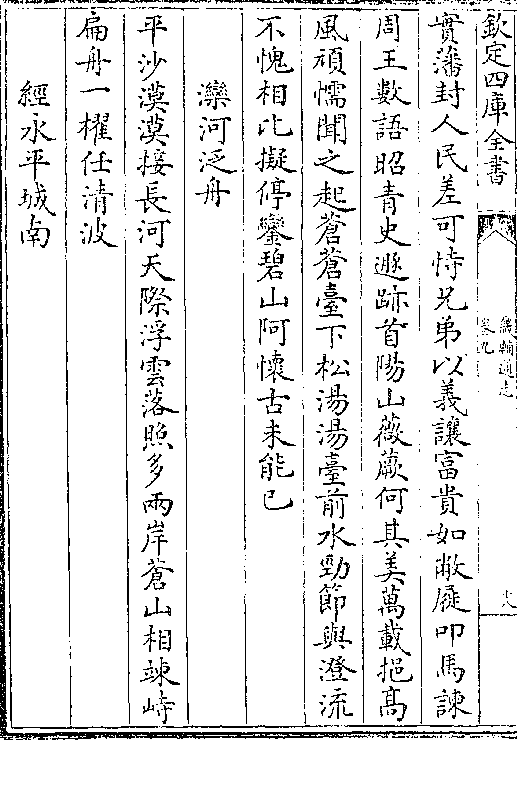 欽定四庫全書
畿輔通志
卷九
十八
實藩封人民差可恃兄弟以義讓富貴如敝屣叩馬諫
周王數語昭青史遯跡首陽山薇蕨何其美萬載挹高
風頑懦聞之起蒼蒼臺下松湯湯臺前水勁節與澄流
不愧相比擬停鑾碧山阿懷古未能已
灤河泛舟
平沙漠漠接長河天際浮雲落照多兩岸蒼山相竦峙
扁舟一櫂任清波
經永平城南